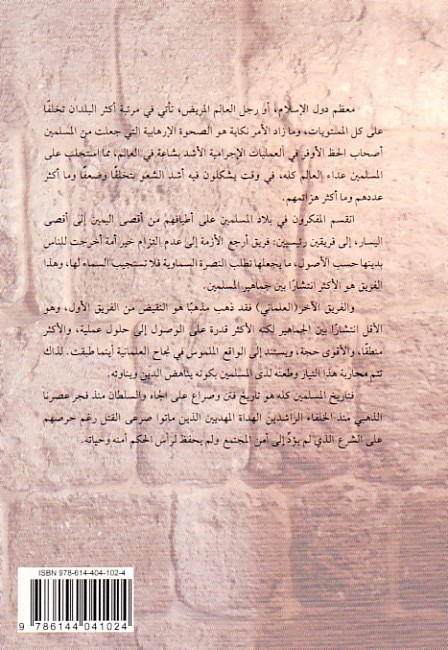 معظم دول الإسلام، أو رجل العالم المريض، تأتي في مرتبة أكثر البلدان تخلفًا
على كل المستويات، وما زاد الأمر نكاية هو الصحوة الإرهابية التي جعلت من المسلمين
أصحاب الحظ الأوفر في العمليات الإجرامية الأشد بشاعة في العالم، مما استجلب على
المسلمين عداء العالم كله، في وقت يشكلون فيه أشد الشعوب تخلّفًا وضعفًا وما أكثر
عددهم وما أكثر هزائمهم.
انقسم المفكرون في بلاد المسلمين على أطيافهم من أقصى اليمين إلى أقصى
اليسار، إلى فريقين رئيسيين: فريق أرجع الأزمة إلى عدم التزام خير أمة أخرجت للناس
بدينها حسب الأصول، ما يجعلها تطلب النصرة السماوية فلا تستجيب السماء لها، وهذا
الفريق هو الأكثر انتشارًا بين جماهير المسلمين.
والفريق الآخر (العلماني) فقد ذهب مذهبًا هو النقيض من الفريق الأول، وهو
الأقل انتشارًا بين الجماهير لكنه الأكثر قدرة على الوصول إلى حلول عملية، والأكثر
منطقًا، والأقوى حجة، ويستند إلى الواقع الملموس في نجاح العلمانية أينما طبقت. لذلك
تتم محاربة هذا التيار وطعنه لدى المسلمين بكونه يناهض الدين ويناوئه.
فتاريخ المسلمين كله هو تاريخ فتن وصراع على الجاه والسلطان منذ فجر عصرنا
الذهبي منذ الخلفاء الراشدين الهداة المهديين الذين ماتوا صرعى القتل رغم حرصهم
على الشرع الذي لم يؤدِّ إلى أمن المجتمع ولم يحفظ لرأس الحكم أمنه وحياته.
ISBN 978-614-404-102-4
9 786144 041024